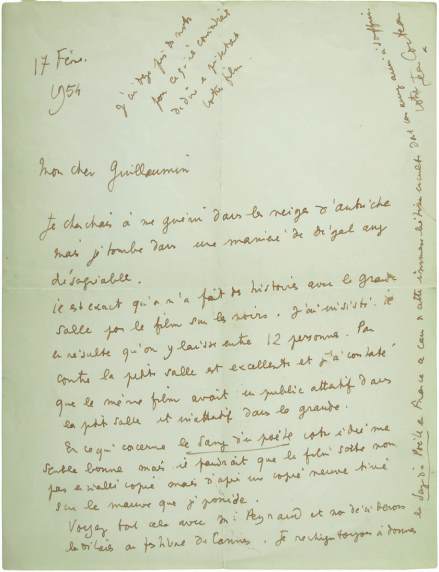 17 Fév.
1954
j'ai déjà fait de notre
pour ce qu'il conviendrait
de dire
votre film.
Mon cher Guillaumin
Je cherchais à me guérir dans les neiges d'autriche
mais je tombe dans une manière de dégel assez
désagréable.
il est exact qu'on m'a fait des histoires avec la grande
salle pour le film sur les noirs. J'ai insisté. il
en résulte qu'on y laisse entrer 12 personnes. Par
contre la petite salle est excellente et j'ai constaté
que le même film avait un public attentif dans
la petite salle et inattentif dans la grande.
En ce qui concerne le Sang du poète votre idée me
semble bonne mais il faudrait que le film sorte non
pas vieille copie mais d'après une copie neuve tirée
sur le marron que je possède.
Voyez tout cela avec M. Peyraud et nous déciderons
au festival de Cannes. Je rechigne toujours à donner
le Sang du Poète en France à cause de cette
votre Jean Cocteau